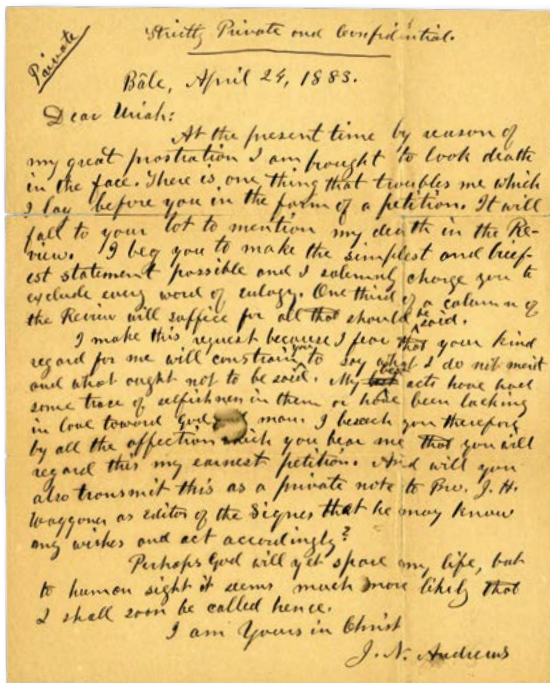 Strictly Private and Confidential.
Private
Bâle, April 24, 1883.
Dear Uriah:
At the present time by reason of
my great prostration I am brought to look death
in the face. There is one thing that troubles me which
I lay before you in the form of a petition. It will
fall to your lot to mention my death in the Re-
view. I beg you to make the simplest and brief-
est statement possible and I solemnly charge you to
exclude every word of eulogy. One third of a column of
the Review will suffice for all that should be said.
I make this request because I fear that your kind
regard for me will constrain you to say what I do not merit
and what ought not to be said. My best acts have had
some trace of selfishness in them or have been lacking
in love toward God and man. I beseech you therefore
by all the affection which you bear me that you will
regard this my earnest petition. And will you
also transmit this as a private note to Bro. J. H.
Waggoner as editor of the Signes that he may know
my wishes and act accordingly?
Perhaps God will yet spare my life, but
to human sight it seems much more likely that
I shall soon be called hence.
I am Yours in Christ
J. N. Andrews